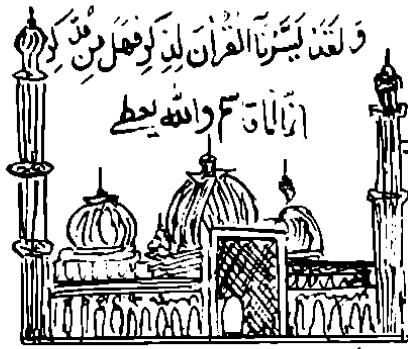 وَلَقَدْ يَسَّرْنَا الْقُرْآنَ لِذِكْرِ فَهَلْ مِنْ مُدَّكِرٍ
انما انا قاسم والله يعطي